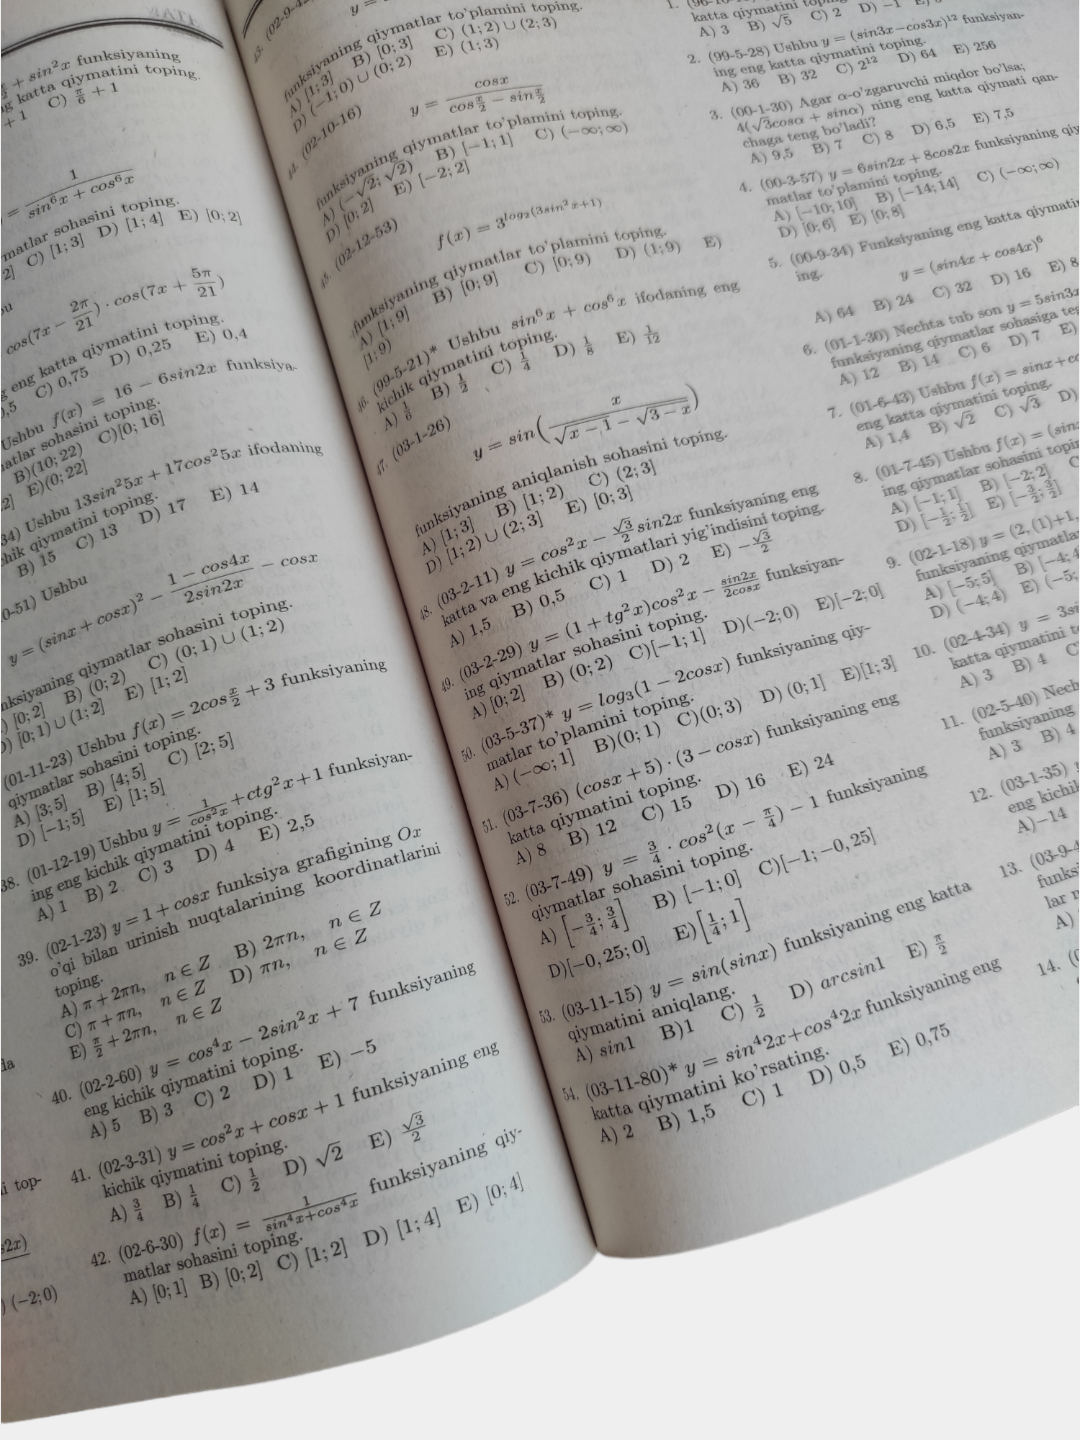 + sin²x funksiyaning
g katta qiymatini toping.
+ 1 C) π/6 + 1
= 1/(sin⁶x + cos⁶x)
matlar sohasini toping.
2] C) [1; 3] D) [1; 4] E) [0; 2]
cos(7x − 2π/21) · cos(7x + 5π/21)
g eng katta qiymatini toping.
,5 C) 0,75 D) 0,25 E) 0,4
Ushbu f(x) = 16 − 6sin2x funksiya-
atlar sohasini toping.
B)(10; 22) C)[0; 16]
2] E)(0; 22]
34) Ushbu 13sin²5x + 17cos²5x ifodaning
chik qiymatini toping.
B) 15 C) 13 D) 17 E) 14
0-51) Ushbu
y = (sinx + cosx)² − (1 − cos4x)/(2sin2x) − cosx
nksiyaning qiymatlar sohasini toping.
) [0; 2] B) (0; 2) C) (0; 1) ∪ (1; 2)
D) [0; 1) ∪ (1; 2] E) [1; 2]
(01-11-23) Ushbu f(x) = 2cos x/2 + 3 funksiyaning
qiymatlar sohasini toping.
A) [3; 5] B) [4; 5] C) [2; 5]
D) [−1; 5] E) [1; 5]
38. (01-12-19) Ushbu y = 1/cos²x + ctg²x + 1 funksiyan-
ing eng kichik qiymatini toping.
A) 1 B) 2 C) 3 D) 4 E) 2,5
39. (02-1-23) y = 1 + cosx funksiya grafigining Ox
o'qi bilan urinish nuqtalarining koordinatlarini
toping.
A) π + 2πn, n ∈ Z B) 2πn, n ∈ Z
C) π + πn, n ∈ Z D) πn, n ∈ Z
E) π/2 + 2πn, n ∈ Z
40. (02-2-60) y = cos⁴x − 2sin²x + 7 funksiyaning
eng kichik qiymatini toping.
A) 5 B) 3 C) 2 D) 1 E) −5
41. (02-3-31) y = cos²x + cosx + 1 funksiyaning eng
kichik qiymatini toping.
A) 3/4 B) 1/4 C) 1/2 D) √2 E) √3/2
42. (02-6-30) f(x) = 1/(sin⁴x+cos⁴x) funksiyaning qiy-
matlar sohasini toping.
A) [0; 1] B) [0; 2] C) [1; 2] D) [1; 4] E) [0; 4]
top-
) (−2; 0)
funksiyaning qiymatlar to'plamini toping.
A) [1; 3] B) [0; 3] C) (1; 2) ∪ (2; 3)
D) (−1; 0) ∪ (0; 2) E) (1; 3)
44. (02-10-16)
y = cosx/(cos x/2 − sin x/2)
funksiyaning qiymatlar to'plamini toping.
A) (−√2; √2) B) [−1; 1] C) (−∞; ∞)
D) [0; 2] E) [−2; 2]
45. (02-12-53)
f(x) = 3^(log₂(3sin²x+1))
funksiyaning qiymatlar to'plamini toping.
A) [1; 9] B) [0; 9] C) [0; 9) D) (1; 9) E)
[1; 9)
46. (99-5-21)* Ushbu sin⁶x + cos⁶x ifodaning eng
kichik qiymatini toping.
A) 1/6 B) 1/2 C) 1/4 D) 1/8 E) 1/12
47. (03-1-26)
y = sin(x/(√(x − 1) − √(3 − x)))
funksiyaning aniqlanish sohasini toping.
A) [1; 3] B) [1; 2) C) (2; 3]
D) [1; 2) ∪ (2; 3] E) [0; 3]
48. (03-2-11) y = cos²x − √3/2 sin2x funksiyaning eng
katta va eng kichik qiymatlari yig'indisini toping.
A) 1,5 B) 0,5 C) 1 D) 2 E) −√3/2
49. (03-2-29) y = (1 + tg²x)cos²x − sin2x/2cosx funksiyan-
ing qiymatlar sohasini toping.
A) [0; 2] B) (0; 2) C)[−1; 1] D)(−2; 0) E)[−2; 0]
50. (03-5-37)* y = log₃(1 − 2cosx) funksiyaning qiy-
matlar to'plamini toping.
A) (−∞; 1] B)(0; 1) C)(0; 3) D) (0; 1] E)[1; 3]
51. (03-7-36) (cosx + 5) · (3 − cosx) funksiyaning eng
katta qiymatini toping.
A) 8 B) 12 C) 15 D) 16 E) 24
52. (03-7-49) y = 3/4 · cos²(x − π/4) − 1 funksiyaning
qiymatlar sohasini toping.
A) [−3/4; 3/4] B) [−1; 0] C)[−1; −0, 25]
D)[−0, 25; 0] E)[1/4; 1]
53. (03-11-15) y = sin(sinx) funksiyaning eng katta
qiymatini aniqlang.
A) sin1 B)1 C) 1/2 D) arcsin1 E) π/2
54. (03-11-80)* y = sin⁴2x+cos⁴2x funksiyaning eng
katta qiymatini ko'rsating.
A) 2 B) 1,5 C) 1 D) 0,5 E) 0,75
katta qiymatini
A) 3 B) √5 C) 2 D) −1
2. (99-5-28) Ushbu y = (sin3x−cos3x)¹² funksiyan-
ing eng katta qiymatini toping.
A) 36 B) 32 C) 2¹² D) 64 E) 256
3. (00-1-30) Agar α-o'zgaruvchi miqdor bo'lsa;
4(√3cosα + sinα) ning eng katta qiymati qan-
chaga teng bo'ladi?
A) 9,5 B) 7 C) 8 D) 6,5 E) 7,5
4. (00-3-57) y = 6sin2x + 8cos2x funksiyaning qiy
matlar to'plamini toping.
A) [−10; 10] B) [−14; 14] C) (−∞; ∞)
D) [0; 6] E) [0; 8]
5. (00-9-34) Funksiyaning eng katta qiymatini
ing.
y = (sin4x + cos4x)⁶
A) 64 B) 24 C) 32 D) 16 E) 8
6. (01-1-30) Nechta tub son y = 5sin3x
funksiyaning qiymatlar sohasiga teg
A) 12 B) 14 C) 6 D) 7 E)
7. (01-6-43) Ushbu f(x) = sinx+co
eng katta qiymatini toping.
A) 1,4 B) √2 C) √3 D)
8. (01-7-45) Ushbu f(x) = (sin
ing qiymatlar sohasini topi
A) [−1; 1] B) [−2; 2] C
D) [−1/2; 1/2] E) [−3/2; 3/2]
9. (02-1-18) y = (2, (1)+1,
funksiyaning qiymatla
A) [−5; 5] B) [−4; 4
D) (−4; 4) E) (−5;
10. (02-4-34) y = 3si
katta qiymatini to
A) 3 B) 4 C
11. (02-5-40) Nech
funksiyaning
A) 3 B) 4
12. (03-1-35) y
eng kichik
A)−14
13. (03-9-4
funks
lar n
A)
14. (0